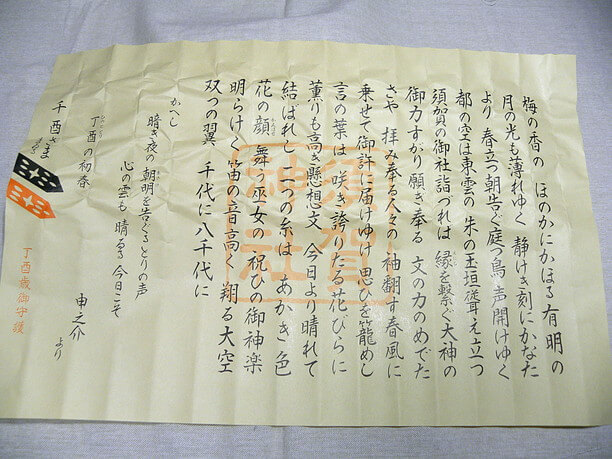 梅の香の ほのかにかほる有明の
月の光も薄れゆく 静けき刻にかなた
より 春立つ朝告ぐ庭つ鳥 声開けゆく
都の空は東雲の 朱の玉垣聳え立つ
須賀の御社詣づれは 縁を繋ぐ大神の
御力すがり願ひ奉る 文の力のめでた
さや 拝み奉る人々の袖翻す春風に
乗せて御許に届けゆけ思ひを籠めし
言の葉は 咲き誇りたる花びらに
薫りも高き懸想文 今日より晴れて
結ばれし 二つの糸は あかき色
花の顔 舞う巫女の 祝ひの御神楽
明らけく笛の音高く 翔る大空
双つの翼 千代に八千代に
かへし
暗き夜の 朝明を告ぐるとりの声
心の雲も 晴るる 今日こそ
丁酉の初春
申之介 より
千酉さま
丁酉歳御守護
須賀神社